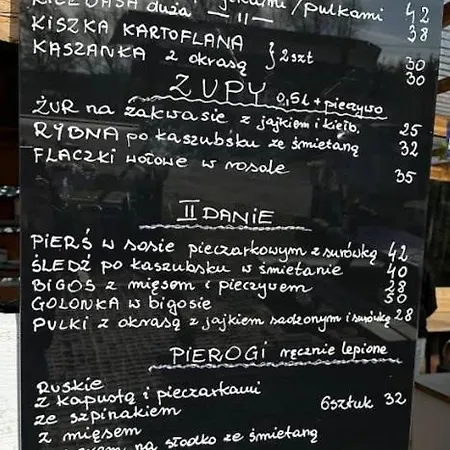 KIEŁBASA duża — 11 — /pulkami 42
38
KISZKA KARTOFLANA
KASZANKA z okrasą } 2szt 30
30
ZUPY 0,5l + pieczywo
ŻUR na zakwasie z jajkiem i kiełb. 25
RYBNA po kaszubsku ze śmietaną 32
FLACZKI wołowe w rosole 35
II DANIE
PIERŚ w sosie pieczarkowym z surówką 42
ŚLEDŹ po kaszubsku w śmietanie 40
BIGOS z mięsem i pieczywem 28
GOLONKA w bigosie 50
PULKI z okrasą z jajkiem sadzonym i surówką 28
PIEROGI ręcznie lepione
Ruskie
z kapustą i pieczarkami
ze szpinakiem 6sztuk 32
z mięsem
na słodko ze śmietaną